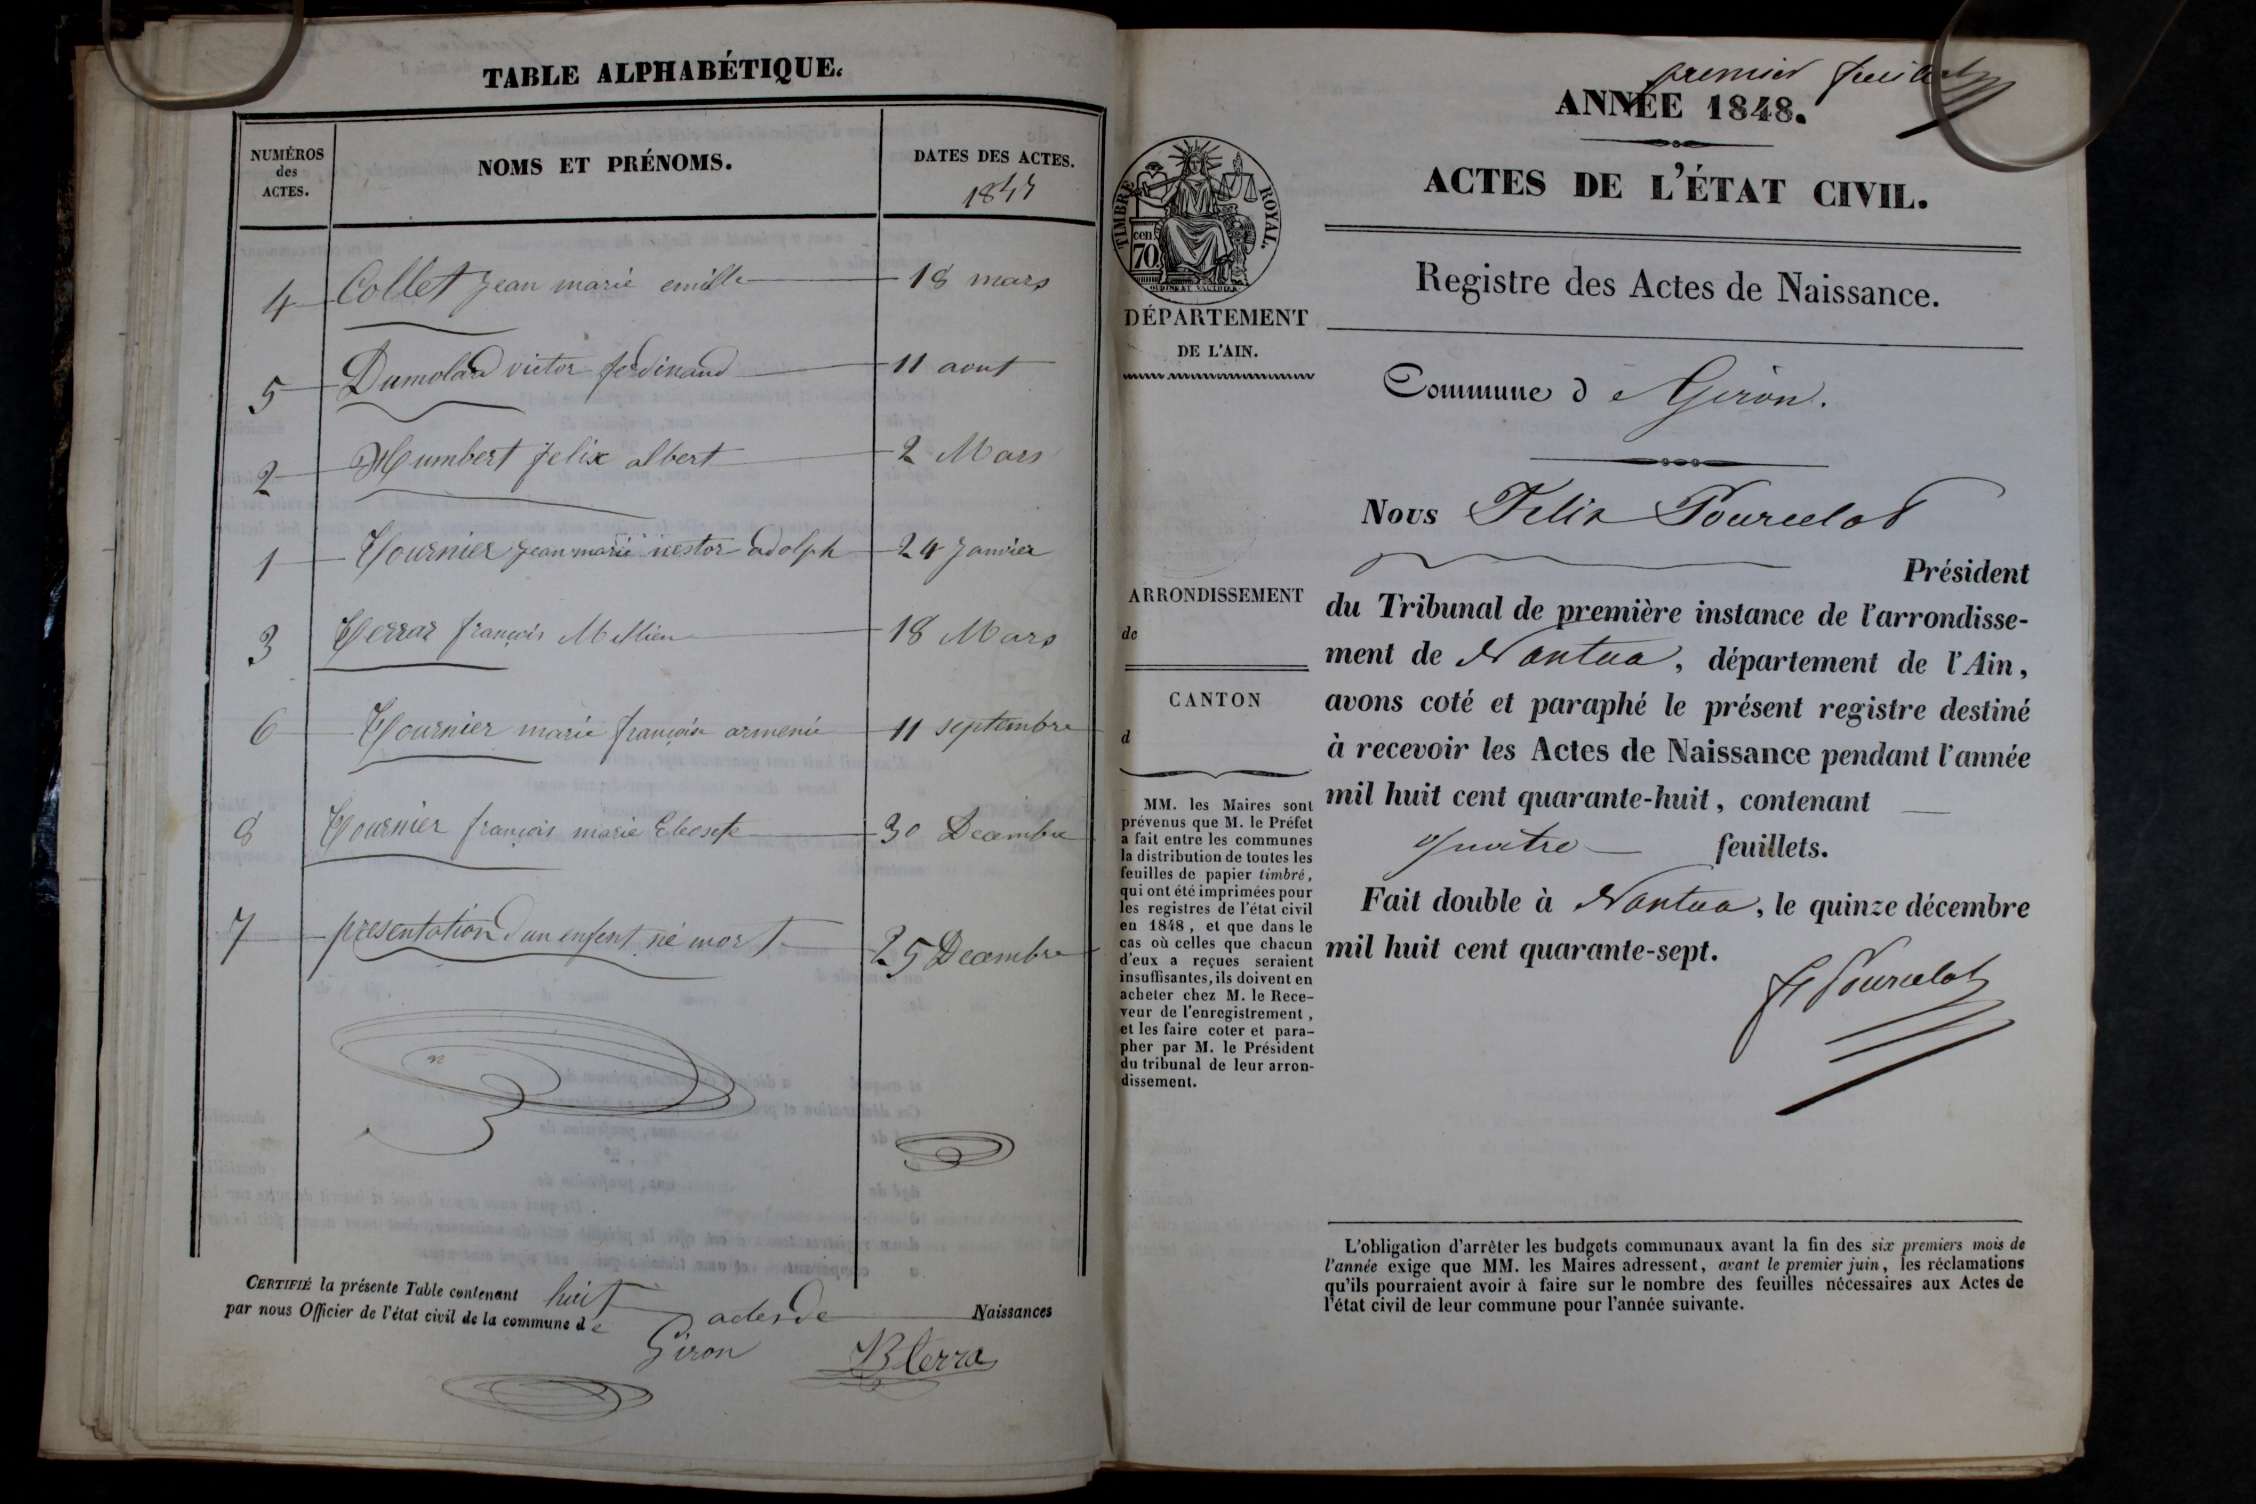 TABLE ALPHABÉTIQUE.
NUMÉROS
des
ACTES.
NOMS ET PRÉNOMS.
DATES DES ACTES.
1847
4 Collet jean marie emille 18 mars
5 Dumolard victor ferdinand 11 aout
2 Humbert felix albert 2 Mars
1 Tournier jean marie nestor adolph 24 janvier
3 françois 18 Mars
6 Tournier marie françoise armenie 11 septembre
8 Tournier françois marie 30 Decembre
7 presentation d'un enfent né mort 25 Decembre
CERTIFIÉ la présente Table contenant huit actes de Naissances
par nous Officier de l'état civil de la commune de Giron
premier feuillet
ANNÉE 1848.
ACTES DE L'ÉTAT CIVIL.
TIMBRE ROYAL.
cen.
70
DÉPARTEMENT
DE L'AIN.
Registre des Actes de Naissance.
Commune de Giron.
Nous Felix Pourcelot
Président
du Tribunal de première instance de l'arrondisse-
ment de Nantua, département de l'Ain,
avons coté et paraphé le présent registre destiné
à recevoir les Actes de Naissance pendant l'année
mil huit cent quarante-huit, contenant
quatre feuillets.
Fait double à Nantua, le quinze décembre
mil huit cent quarante-sept.
Pourcelot
ARRONDISSEMENT
de
CANTON
d
MM. les Maires sont
prévenus que M. le Préfet
a fait entre les communes
la distribution de toutes les
feuilles de papier timbré,
qui ont été imprimées pour
les registres de l'état civil
en 1848, et que dans le
cas où celles que chacun
d'eux a reçues seraient
insuffisantes, ils doivent en
acheter chez M. le Rece-
veur de l'enregistrement,
et les faire coter et para-
pher par M. le Président
du tribunal de leur arron-
dissement.
L'obligation d'arrêter les budgets communaux avant la fin des six premiers mois de
l'année exige que MM. les Maires adressent, avant le premier juin, les réclamations
qu'ils pourraient avoir à faire sur le nombre des feuilles nécessaires aux Actes de
l'état civil de leur commune pour l'année suivante.